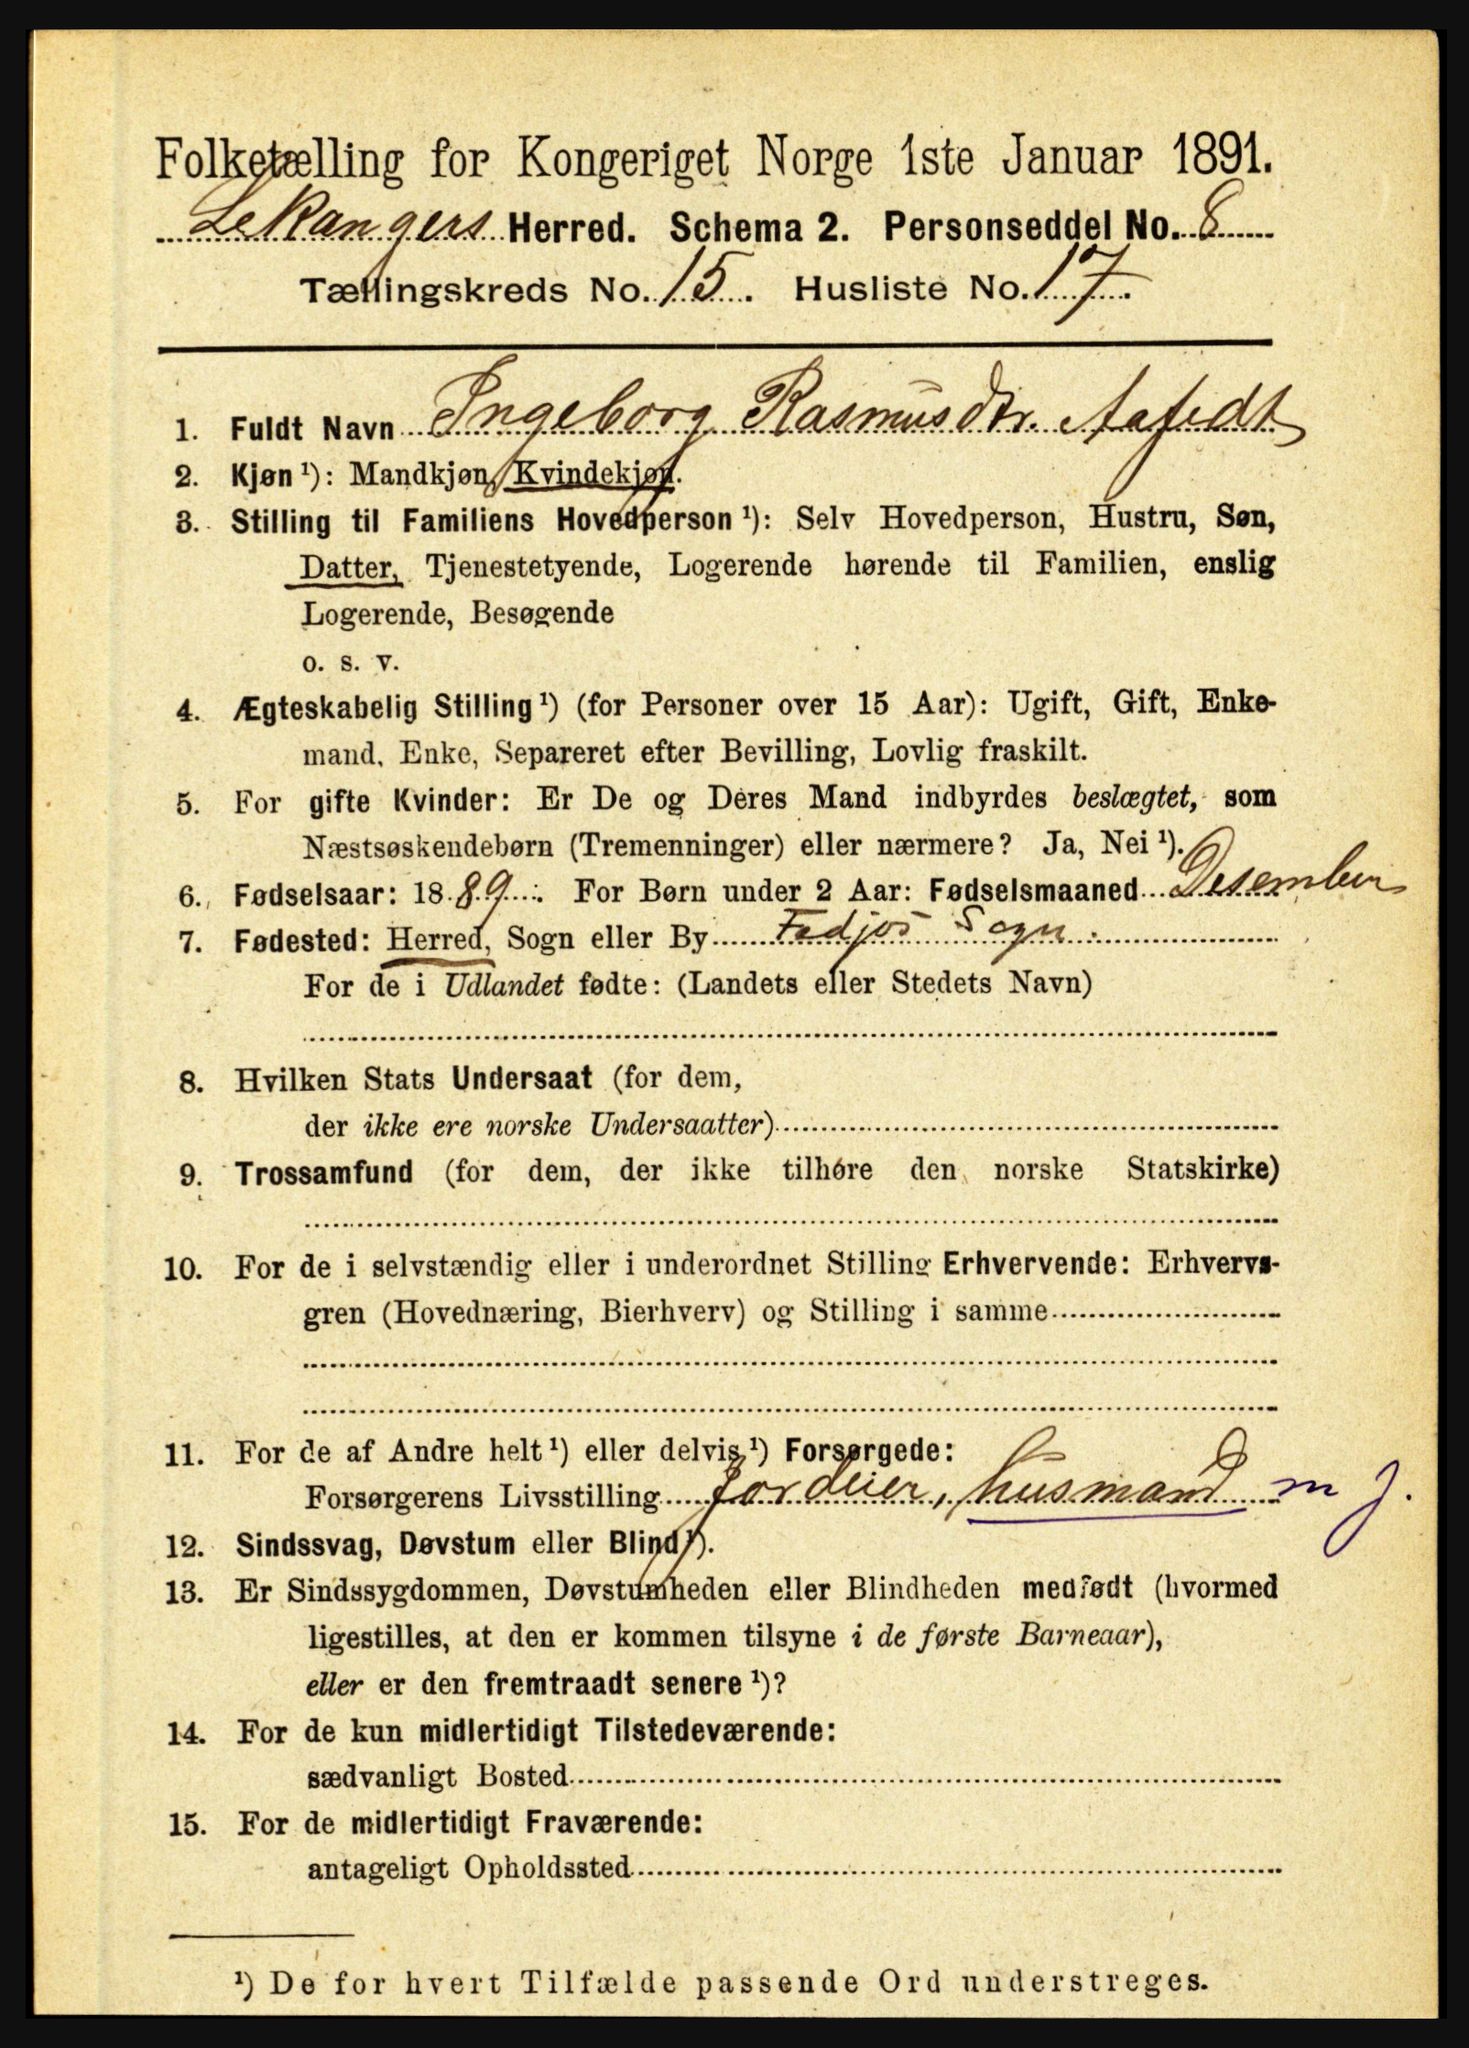 Folketælling for Kongeriget Norge 1ste Januar 1891.
Lekangers Herred. Schema 2. Personseddel No. 8
Tællingskreds No. 15. Husliste No. 17.
1. Fuldt Navn Ingeborg Rasmusdtr. Aafedt
2. Kjøn ¹): Mandkjøn, Kvindekjøn.
3. Stilling til Familiens Hovedperson ¹): Selv Hovedperson, Hustru, Søn,
Datter, Tjenestetyende, Logerende hørende til Familien, enslig
Logerende, Besøgende
o. s. v.
4. Ægteskabelig Stilling ¹) (for Personer over 15 Aar): Ugift, Gift, Enke-
mand, Enke, Separeret efter Bevilling, Lovlig fraskilt.
5. For gifte Kvinder: Er De og Deres Mand indbyrdes beslægtet, som
Næstsøskendebørn (Tremenninger) eller nærmere? Ja, Nei ¹).
6. Fødselsaar: 1889. For Børn under 2 Aar: Fødselsmaaned Desember
7. Fødested: Herred, Sogn eller By Fedjos Sogn.
For de i Udlandet fødte: (Landets eller Stedets Navn)
8. Hvilken Stats Undersaat (for dem,
der ikke ere norske Undersaatter)
9. Trossamfund (for dem, der ikke tilhøre den norske Statskirke)
10. For de i selvstændig eller i underordnet Stilling Erhvervende: Erhvervs-
gren (Hovednæring, Bierhverv) og Stilling i samme
11. For de af Andre helt ¹) eller delvis ¹) Forsørgede:
Forsørgerens Livsstilling Jordeier, husmand m J.
12. Sindssvag, Døvstum eller Blind ¹).
13. Er Sindssygdommen, Døvstumheden eller Blindheden medfødt (hvormed
ligestilles, at den er kommen tilsyne i de første Barneaar),
eller er den fremtraadt senere ¹)?
14. For de kun midlertidigt Tilstedeværende:
sædvanligt Bosted
15. For de midlertidigt Fraværende:
antageligt Opholdssted
¹) De for hvert Tilfælde passende Ord understreges.